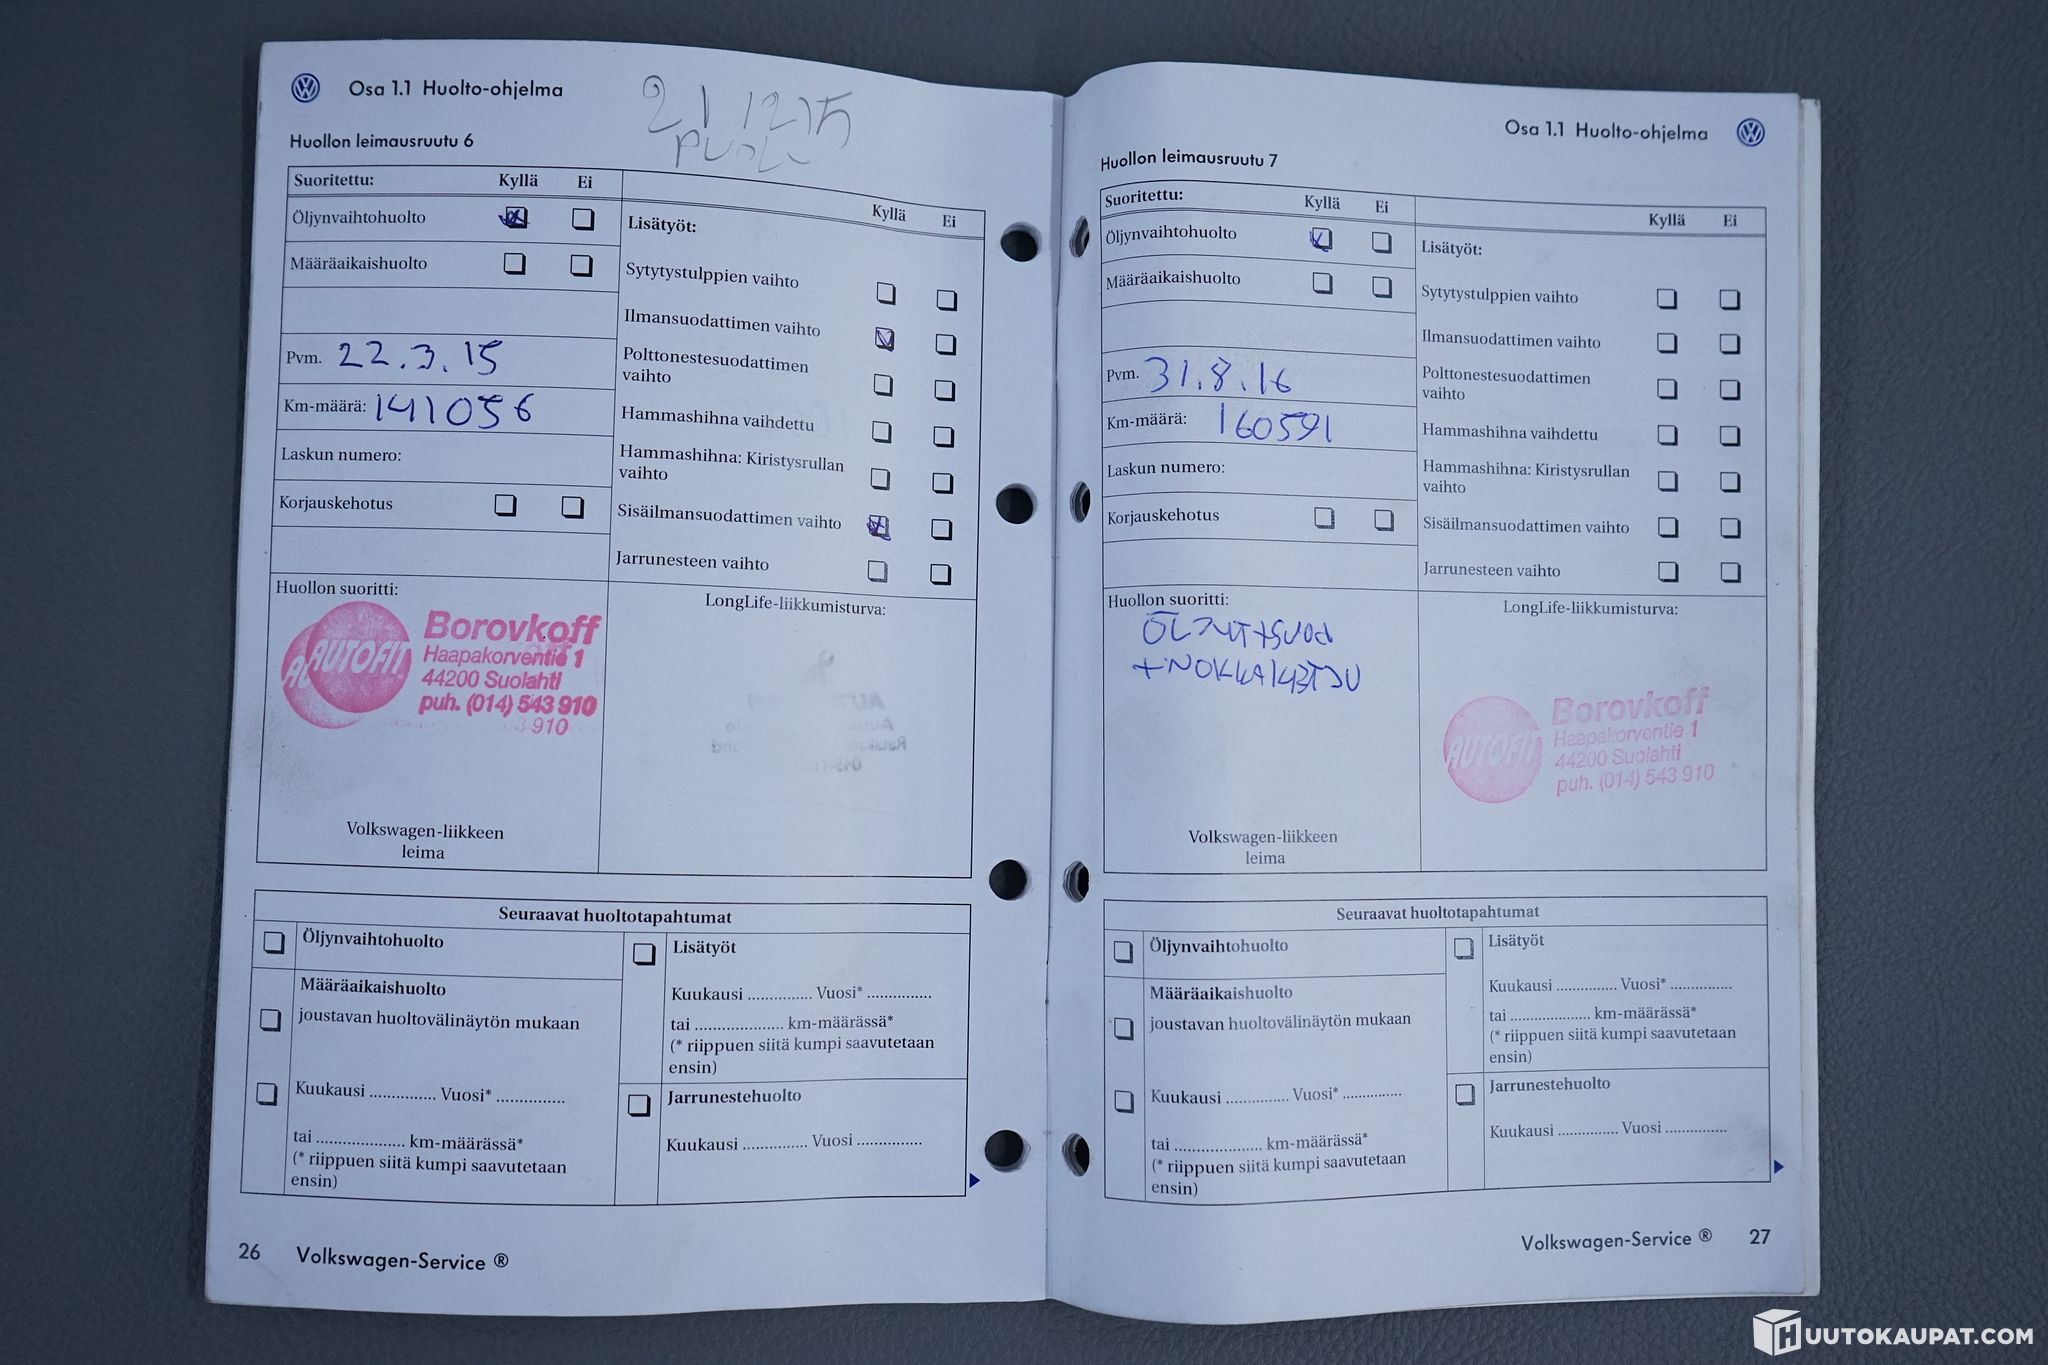 Osa 1.1 Huolto-ohjelma
Huollon leimausruutu 6
Suoritettu: Kyllä Ei
Öljynvaihtohuolto
Määräaikaishuolto
Pvm. 22.3.15
Km-määrä: 141056
Laskun numero:
Korjauskehotus
Kyllä Ei
Lisätyöt:
Sytytystulppien vaihto
Ilmansuodattimen vaihto
Polttonestesuodattimen
vaihto
Hammashihna vaihdettu
Hammashihna: Kiristysrullan
vaihto
Sisäilmansuodattimen vaihto
Jarrunesteen vaihto
Huollon suoritti:
AUTOFIT
Borovkoff
Haapakorventie 1
44200 Suolahti
puh. (014) 543 910
Volkswagen-liikkeen
leima
LongLife-liikkumisturva:
Seuraavat huoltotapahtumat
Öljynvaihtohuolto
Määräaikaishuolto
joustavan huoltovälinäytön mukaan
Kuukausi ............... Vuosi* ...............
tai .................... km-määrässä*
(* riippuen siitä kumpi saavutetaan
ensin)
Lisätyöt
Kuukausi ............... Vuosi* ...............
tai .................... km-määrässä*
(* riippuen siitä kumpi saavutetaan
ensin)
Jarrunestehuolto
Kuukausi ............... Vuosi ...............
26 Volkswagen-Service ®
Osa 1.1 Huolto-ohjelma
Huollon leimausruutu 7
Suoritettu: Kyllä Ei
Öljynvaihtohuolto
Määräaikaishuolto
Pvm. 31.8.16
Km-määrä: 160591
Laskun numero:
Korjauskehotus
Kyllä Ei
Lisätyöt:
Sytytystulppien vaihto
Ilmansuodattimen vaihto
Polttonestesuodattimen
vaihto
Hammashihna vaihdettu
Hammashihna: Kiristysrullan
vaihto
Sisäilmansuodattimen vaihto
Jarrunesteen vaihto
Huollon suoritti:
Volkswagen-liikkeen
leima
LongLife-liikkumisturva:
AUTOFIT
Borovkoff
Haapakorventie 1
44200 Suolahti
puh. (014) 543 910
Seuraavat huoltotapahtumat
Öljynvaihtohuolto
Määräaikaishuolto
joustavan huoltovälinäytön mukaan
Kuukausi ............... Vuosi* ...............
tai .................... km-määrässä*
(* riippuen siitä kumpi saavutetaan
ensin)
Lisätyöt
Kuukausi ............... Vuosi* ...............
tai .................... km-määrässä*
(* riippuen siitä kumpi saavutetaan
ensin)
Jarrunestehuolto
Kuukausi ............... Vuosi ...............
Volkswagen-Service ® 27
HUUTOKAUPAT.COM